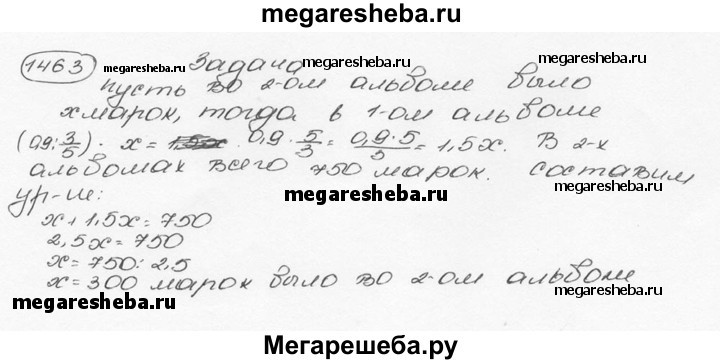 megaresheba.ru
1463 megaresheba.ru Задача megaresheba.ru
пусть во 2-ом альбоме было
x марок, тогда в 1-ом альбоме
(0,9 : 3/5) · x = 0,9 · 5/3 = 0,9·5/3 = 1,5x. В 2-х
альбомах всего 750 марок. составим
ур-ие: megaresheba.ru
x + 1,5x = 750
2,5x = 750
x = 750 : 2,5
x = 300 марок было во 2-ом альбоме
megaresheba.ru megaresheba.ru
Мегарешеба.ру